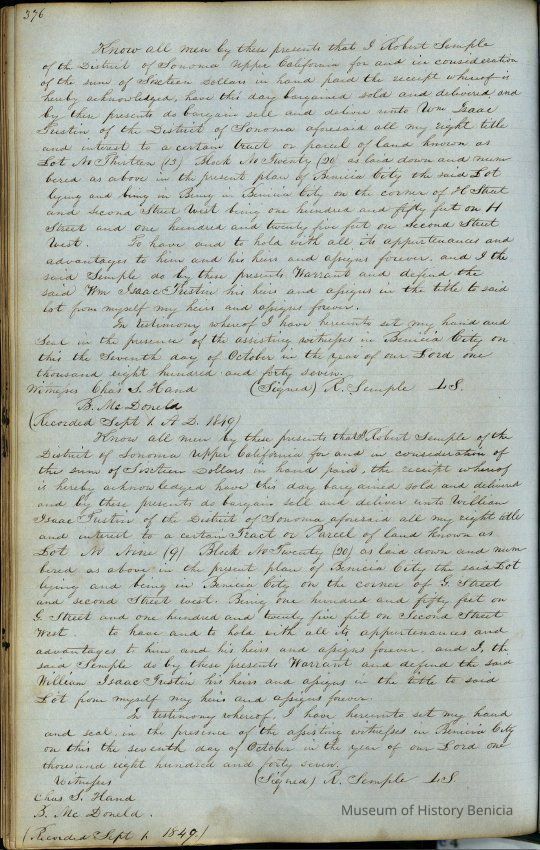 376
Know all men by these presents that I Robert Semple
of the District of Sonoma Upper California for and in consideration
of the sum of Sixteen Dollars in hand paid the receipt whereof is
hereby acknowledged, have this day bargained sold and delivered and
by these presents do bargain sell and deliver unto Wm Isaac
Tustin of the District of Sonoma aforesaid all my right title
and interest to a certain tract or parcel of land known as
Lot No Thirteen (13) Block No Twenty (20) as laid down and num
bered as above in the present plan of Benicia City the said Lot
lying and being in Being in Benicia City on the corner of H Street
and second Street West being one hundred and fifty feet on H
Street and one hundred and twenty five feet on Second Street
West. To have and to hold with all its appurtenances and
advantages to him and his heirs and assigns forever, and I the
said Semple do by these presents Warrant and defend the
said Wm Isaac Tustin his heirs and assigns in the title to said
Lot from myself my heirs and assigns forever.
In testimony whereof I have hereunto set my hand and
Seal in the presence of the assisting witnesses in Benicia City on
this the Seventh day of October in the year of our Lord one
thousand eight hundred and forty seven.
Witnesses Chas S. Hand (Signed) R. Semple L S.
B. Mc Doneld
(Recorded Sept 1. A D. 1849)
Know all men by these presents that I Robert Semple of the
District of Sonoma Upper California for and in consideration of
the sum of Sixteen Dollars in hand paid, the receipt whereof
is hereby acknowledged have this day bargained sold and delivered
and by these presents do bargain sell and deliver unto William
Isaac Tustin of the District of Sonoma aforesaid all my right title
and interest to a certain Tract or Parcel of land known as
Lot No Nine (9) Block No Twenty (20) as laid down and num
bered as above in the present plan of Benicia City the said Lot
lying and being in Benicia City on the corner of G. Street
and second Street west. Being one hundred and fifty feet on
G. Street and one hundred and twenty five feet on Second Street
West. to have and to hold with all its appurtenances and
advantages to him and his heirs and assigns forever. and I, the
said Semple do by these presents Warrant and defend the said
William Isaac Tustin his heirs and assigns in the title to said
Lot from myself my heirs and assigns forever.
In testimony whereof, I have hereunto set my hand
and seal in the presence of the assisting witnesses in Benicia City
on this the seventh day of October in the year of our Lord one
thousand eight hundred and forty seven.
Witnesses (Signed) R. Semple L S.
Chas. S. Hand
B. Mc Doneld.
(Recorded Sept 1. 1849)
Museum of History Benicia